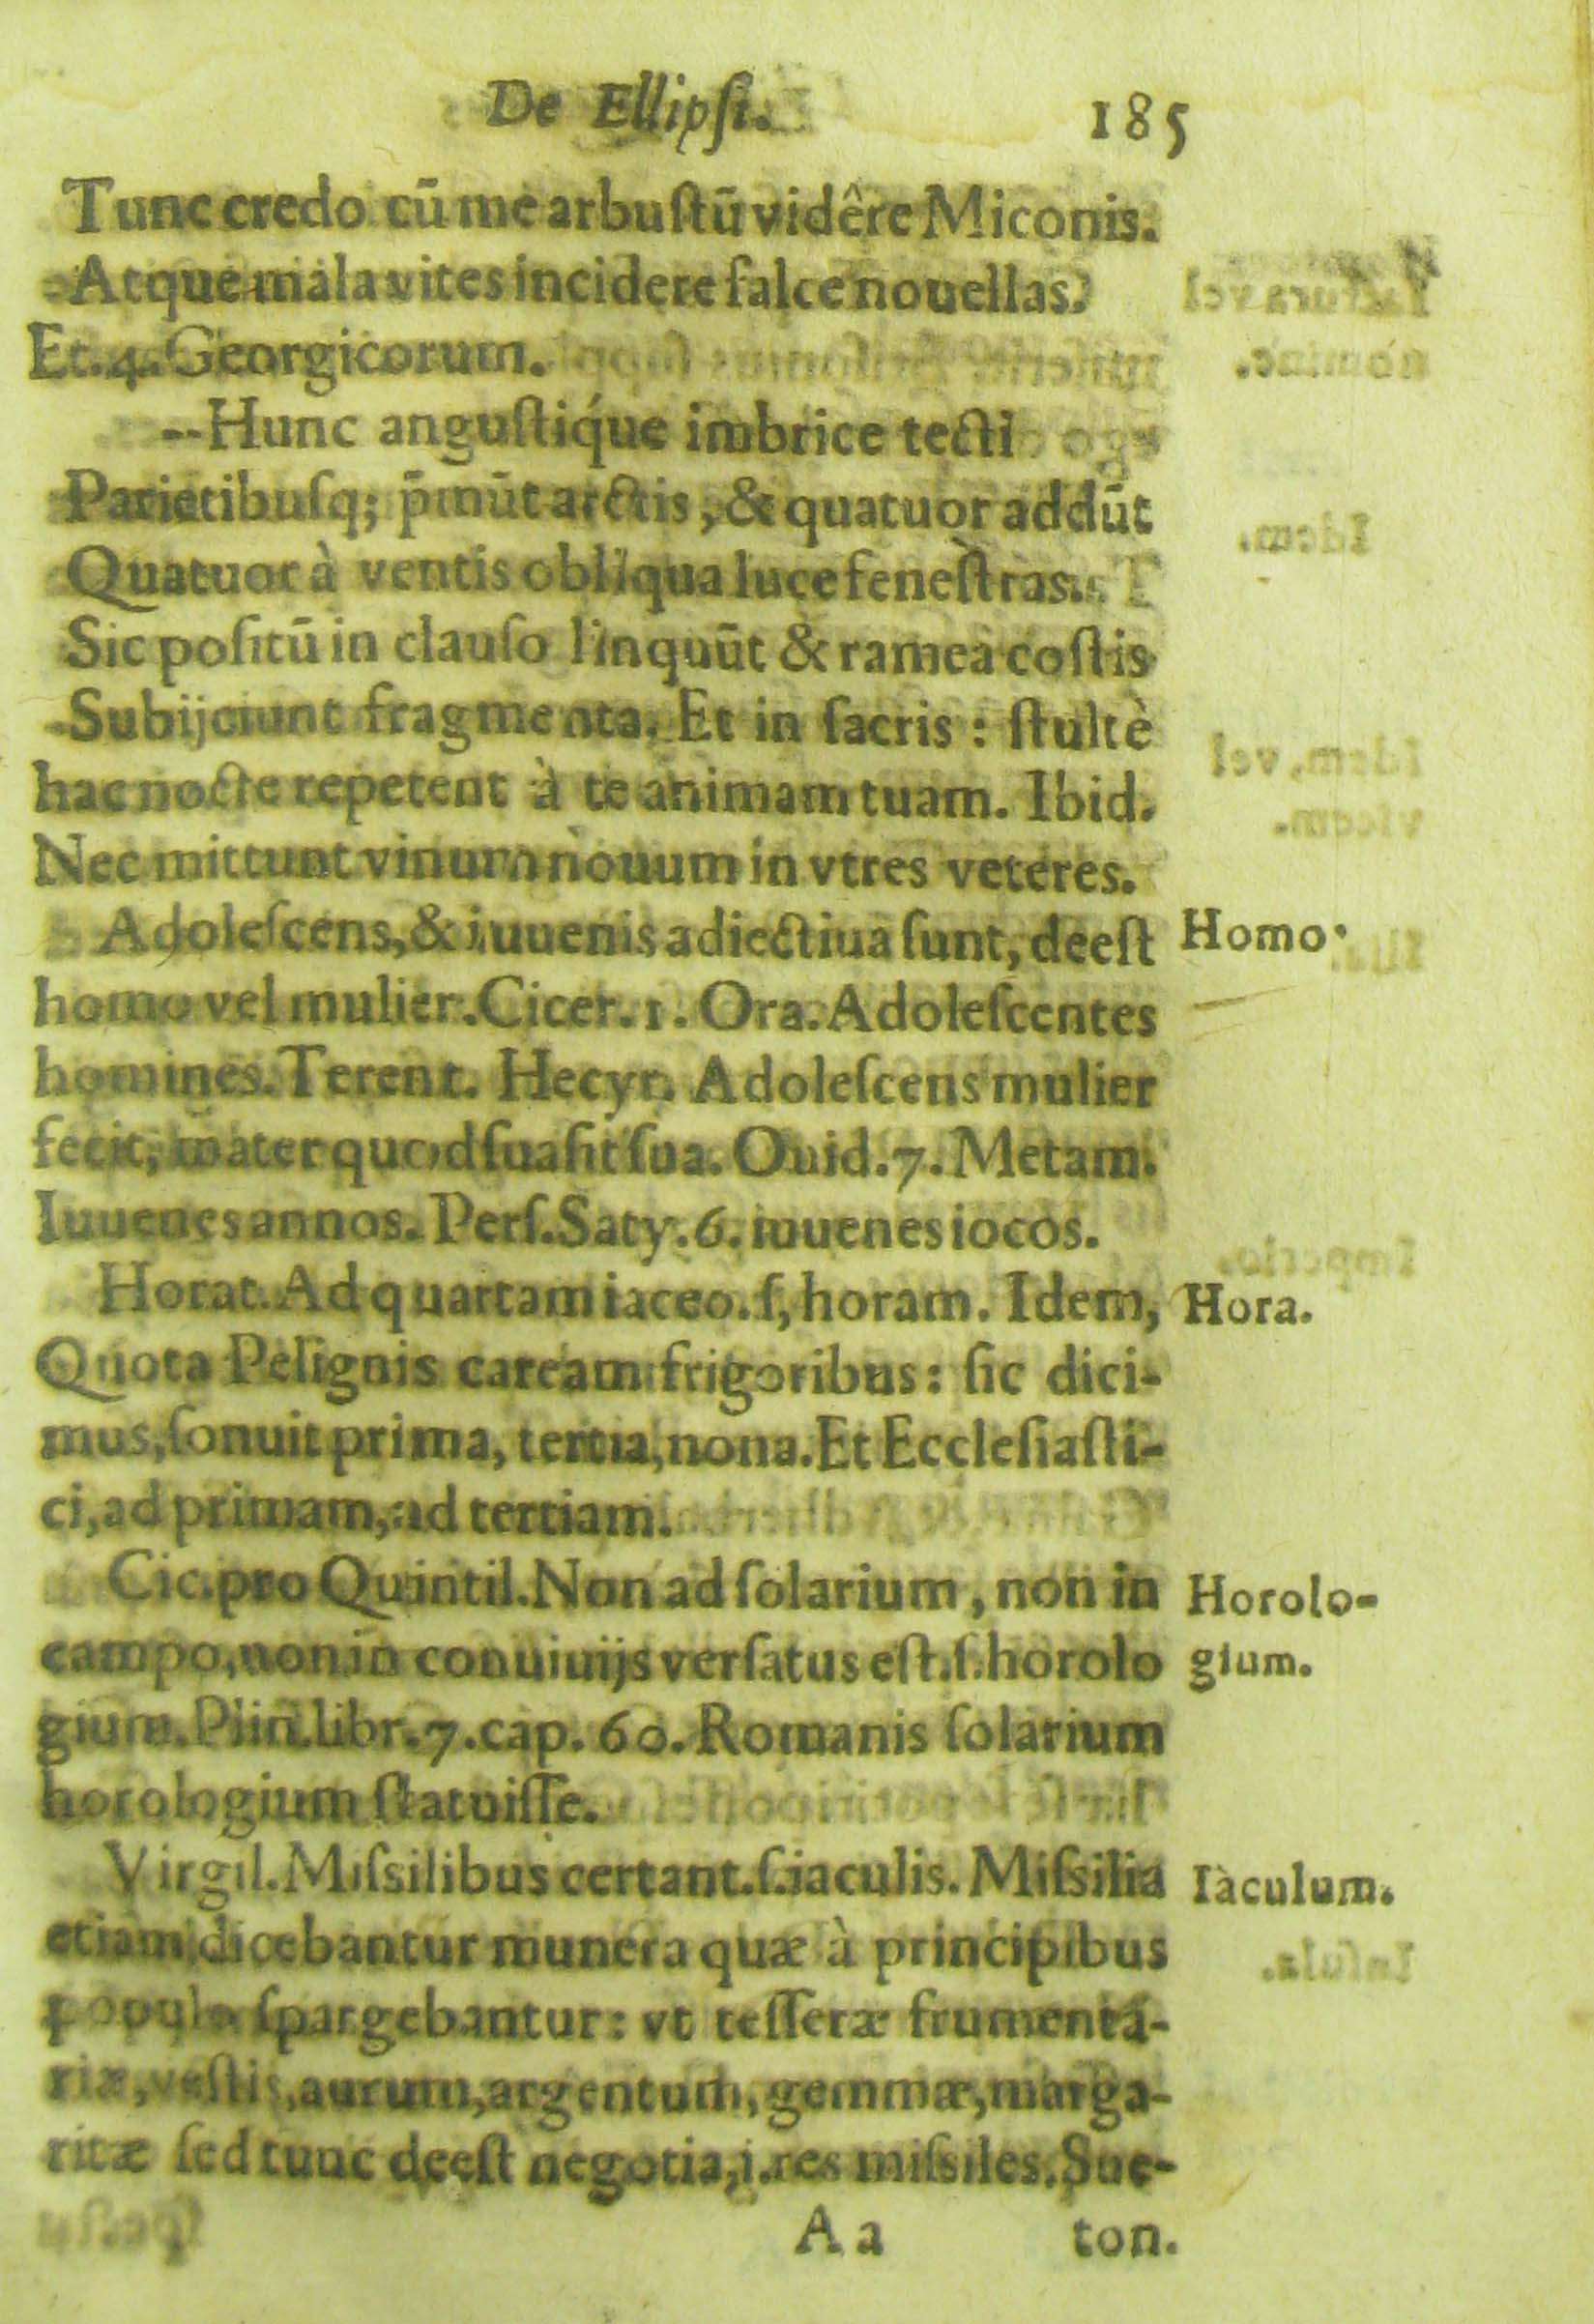 De Ellipſi. 185
Tunc credo cū me arbuſtū vidêre Miconis.
Atque mala vites incidere falce nouellas.
Et. 4. Georgicorum.
--Hunc anguſtiq́ue imbrice tecti
Parietibuſq; p̄mūt arctis, & quatuor addūt
Quatuor à ventis obliqua luce feneſtras.
Sic poſitū in clauſo linquūt & ramea coſtis
Subijciunt fragmenta. Et in ſacris : ſtultè
hac nocte repetent à te animam tuam. Ibid.
Nec mittunt vinum nouum in vtres veteres.
Adoleſcens, & iuuenis adiectiua ſunt, deeſt Homo.
homo vel mulier. Cicer. 1. Ora. Adoleſcentes
homines. Terent. Hecyr. Adoleſcens mulier
fecit, mater quod ſuaſit ſua. Ouid. 7. Metam.
Iuuenes annos. Perſ. Saty. 6. iuuenes iocos.
Horat. Ad quartam iaceo. ſ, horam. Idem, Hora.
Quota Pelignis caream frigoribus : ſic dici-
mus, ſonuit prima, tertia, nona. Et Eccleſiaſti-
ci, ad primam, ad tertiam.
Cic. pro Quintil. Non ad ſolarium, non in Horolo-
campo, non in conuiuijs verſatus eſt. ſ. horolo gium.
gium. Plin. libr. 7. cap. 60. Romanis ſolarium
horologium ſtatuiſſe.
Virgil. Miſsilibus certant. ſ. iaculis. Miſsilia Iaculum.
etiam dicebantur munera quæ à principibus
populo ſpargebantur : vt teſſeræ frumenta-
riæ, veſtis, aurum, argentum, gemmæ, marga-
ritæ ſed tunc deeſt negotia, i. res miſsiles. Sue-
A a ton.